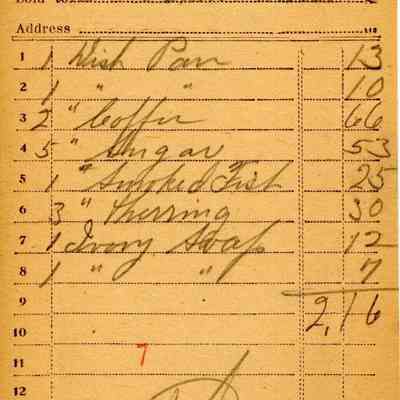 Sold to
Address
1 1 Dish Pan 13
2 1 " " 10
3 2 " Coffee 66
4 5 " Sugar 53
5 1 " Smoked Fish 25
6 3 " Herring 30
7 1 Ivory Soap 12
8 1 " " 7
9 2,16
10
11 7
12